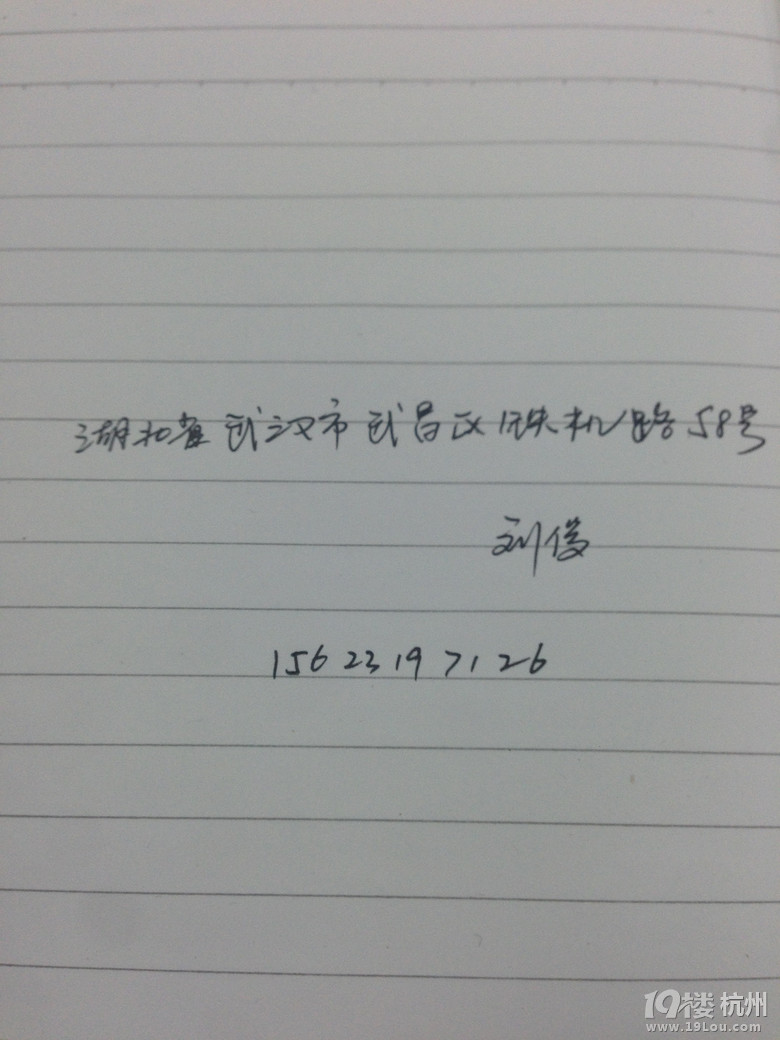 湖北省武汉市武昌区铁机路58号
刘俊
15623197126
19楼 杭州
www.19Lou.com